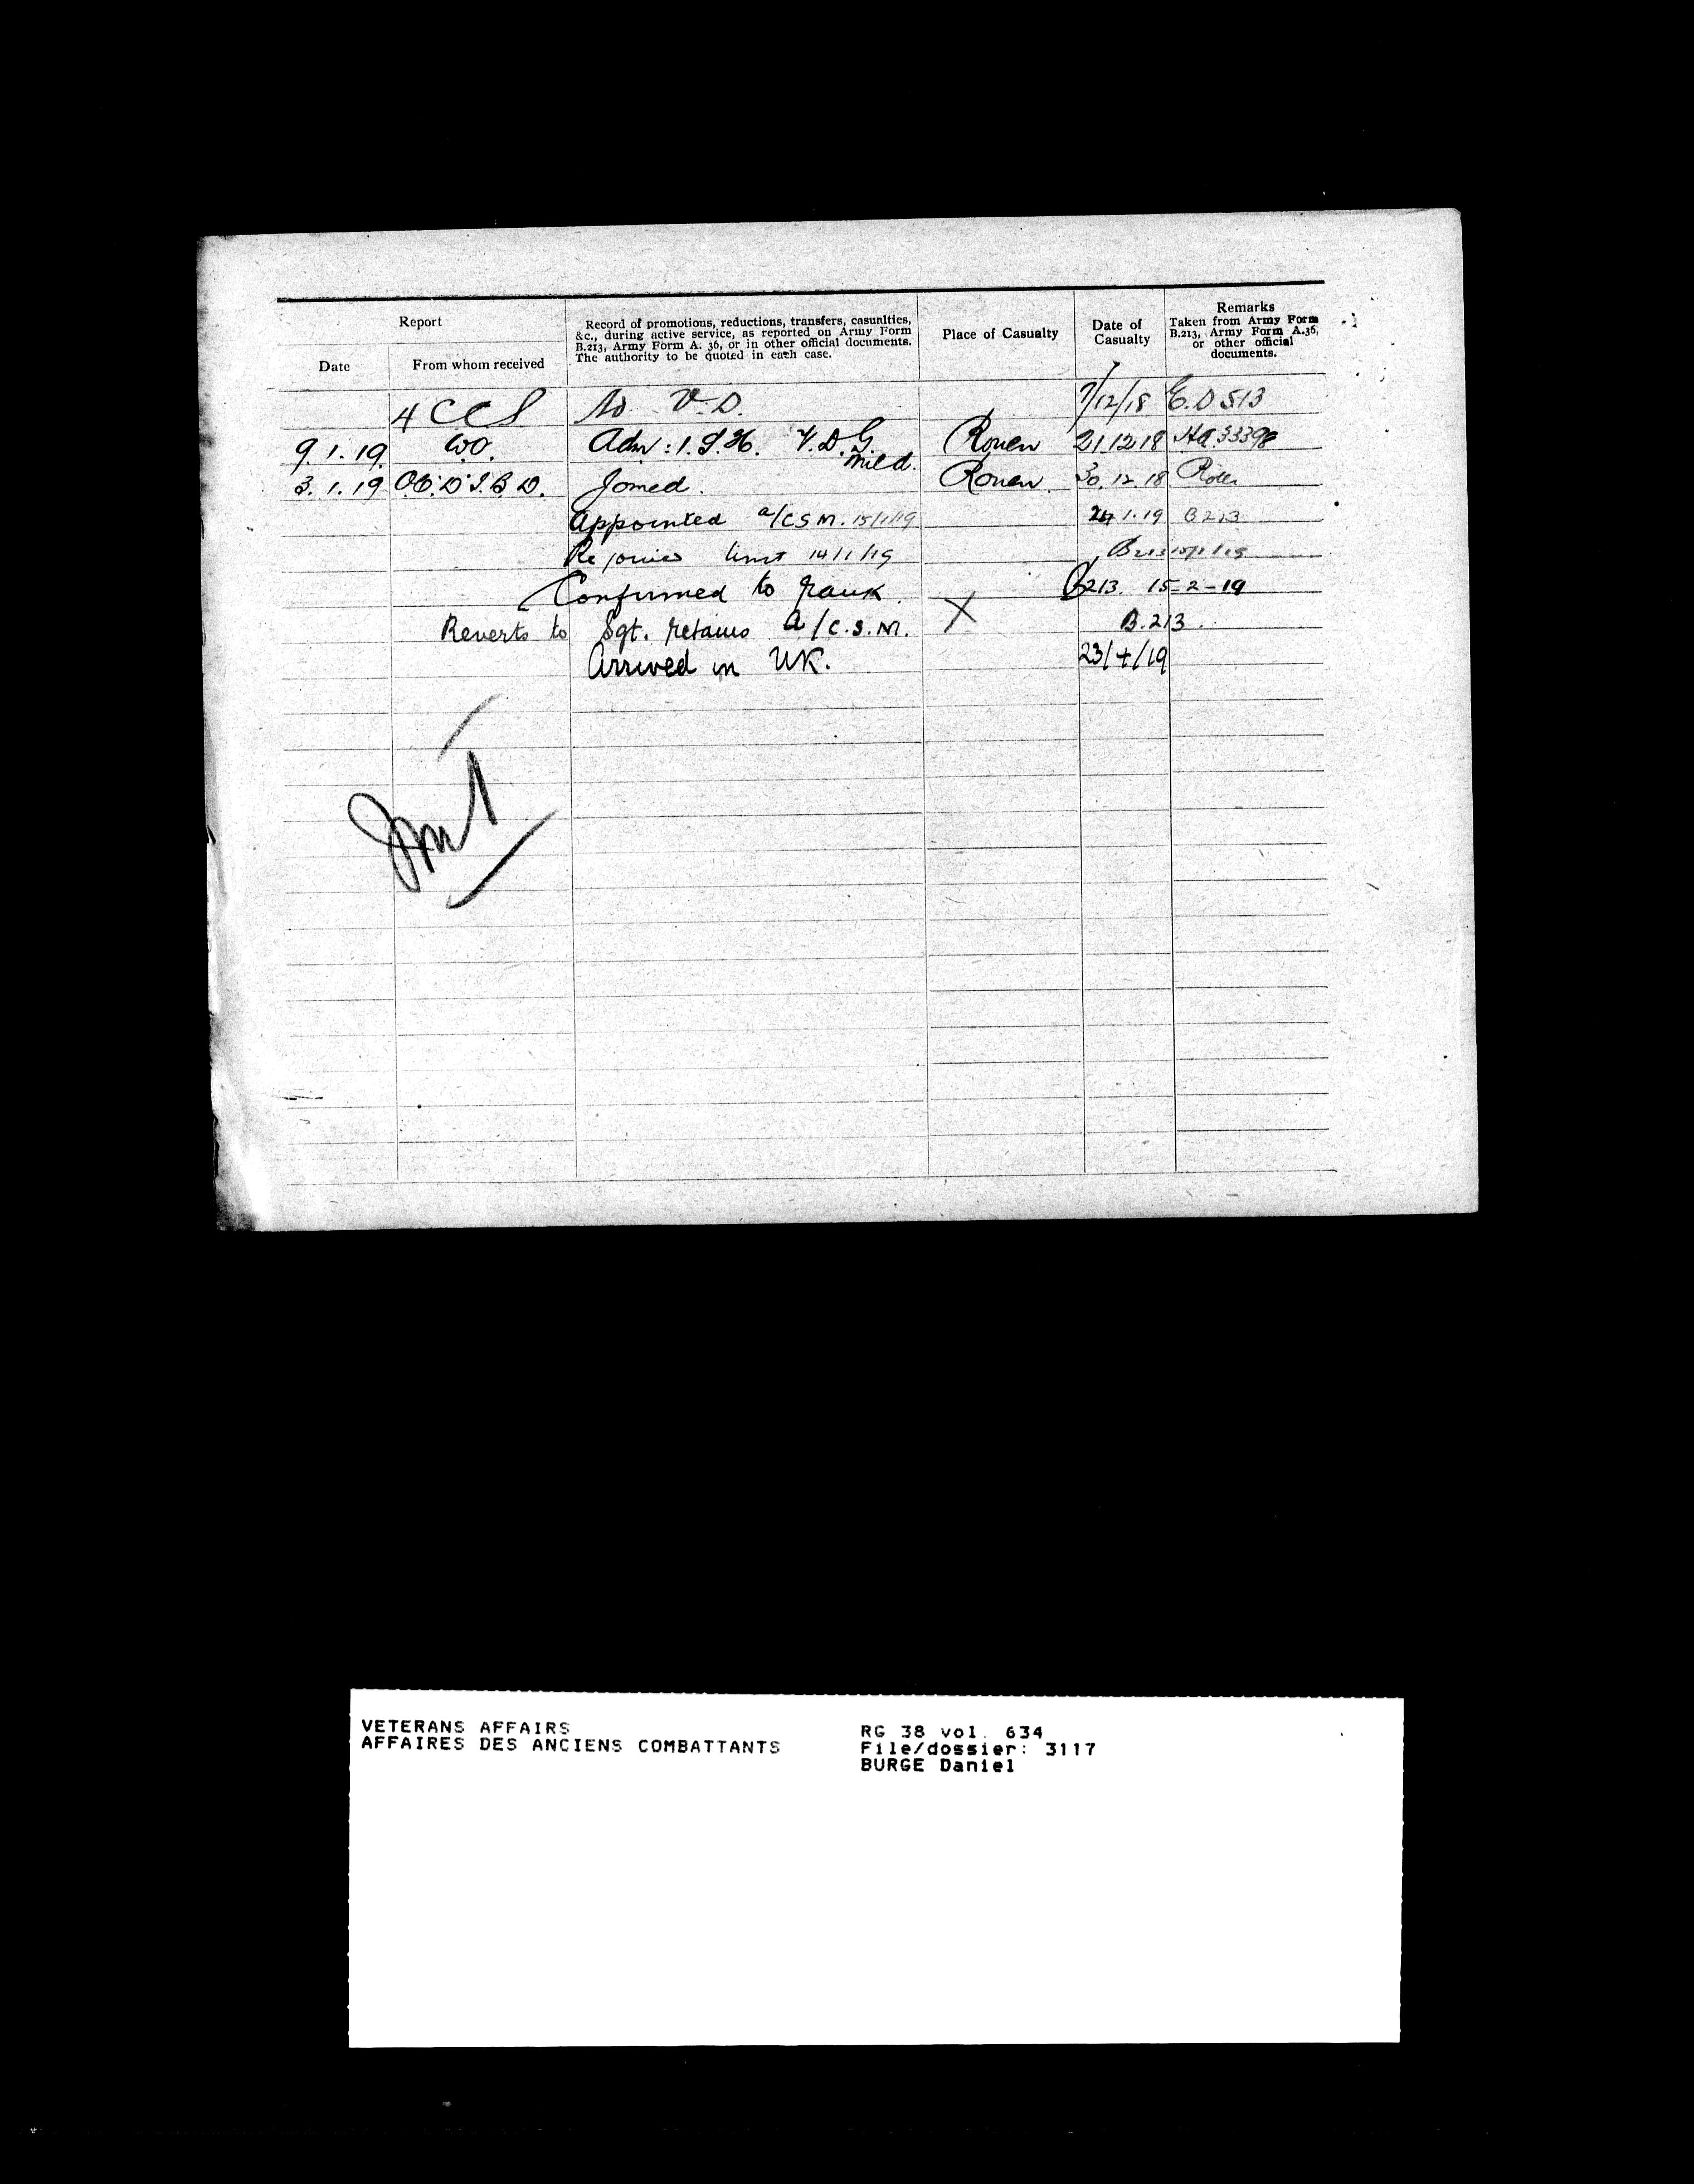 Report
Record of promotions, reductions, transfers, casualties,
&c., during active service, as reported on Army Form
B.213, Army Form A. 36, or in other official documents.
The authority to be quoted in each case.
Place of Casualty
Date of
Casualty
Remarks
Taken from Army Form
B.213, Army Form A.36,
or other official
documents.
Date
From whom received
4 CCS V.D. 7/12/18 E.D 513
9.1.19 WO. Adm: 1.S.H. V.D.G. Rouen 21.12.18 HA.33398
mild.
3.1.19 Joined. Rouen 30.12.18
Appointed a/CSM. 15/1/19 1.19 B213
14/1/19 B213
Confirmed to rank. B213. 15-2-19
Reverts to Sgt. retains A/C.S.M. X B.213.
Arrived in UK. 23/4/19
VETERANS AFFAIRS
AFFAIRES DES ANCIENS COMBATTANTS
RG 38 vol. 634
File/dossier: 3117
BURGE Daniel